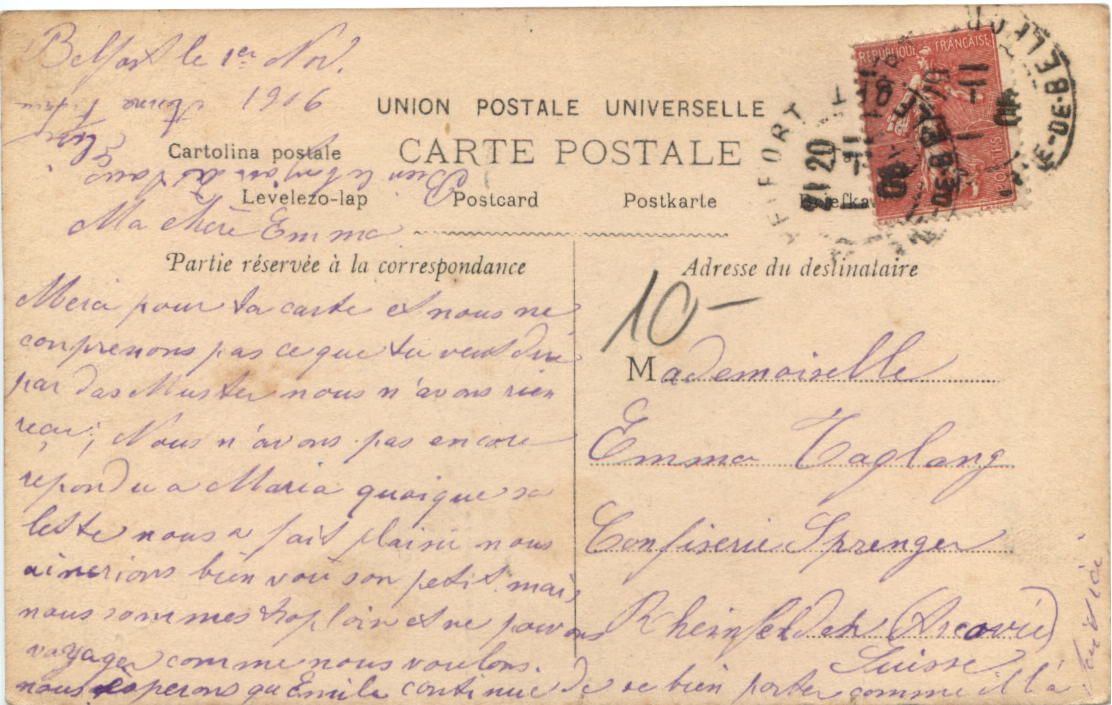 Belfort le 1er Nov.
1906
UNION POSTALE UNIVERSELLE
CARTE POSTALE
Cartolina postale
Levelezo-lap Postcard Postkarte
Bien le bonjour de
Ma chère Emma
Partie réservée à la correspondance
Merci pour ta carte et nous ne
conprenons pas ce que tu veut dire
par das Muster nous n'avons rien
reçu; Nous n'avons pas encore
repondu a Maria quoique sa
lettre nous a fait plaisir nous
aimerions bien voir son petit mais
nous sommes trop loin et ne pouvons
voyager comme nous voulons.
nous esperons qu Emile continue de se bien porter comme il l'a
Adresse du destinataire
10-
Mademoiselle
Emma Taglang
Confiserie Sprenger
Rheinfelden (Arcovie)
Suisse
REPUBLIQUE FRANÇAISE
POSTES
BELFORT
21 20
1 -11
06
Tª-DE-BELFORT